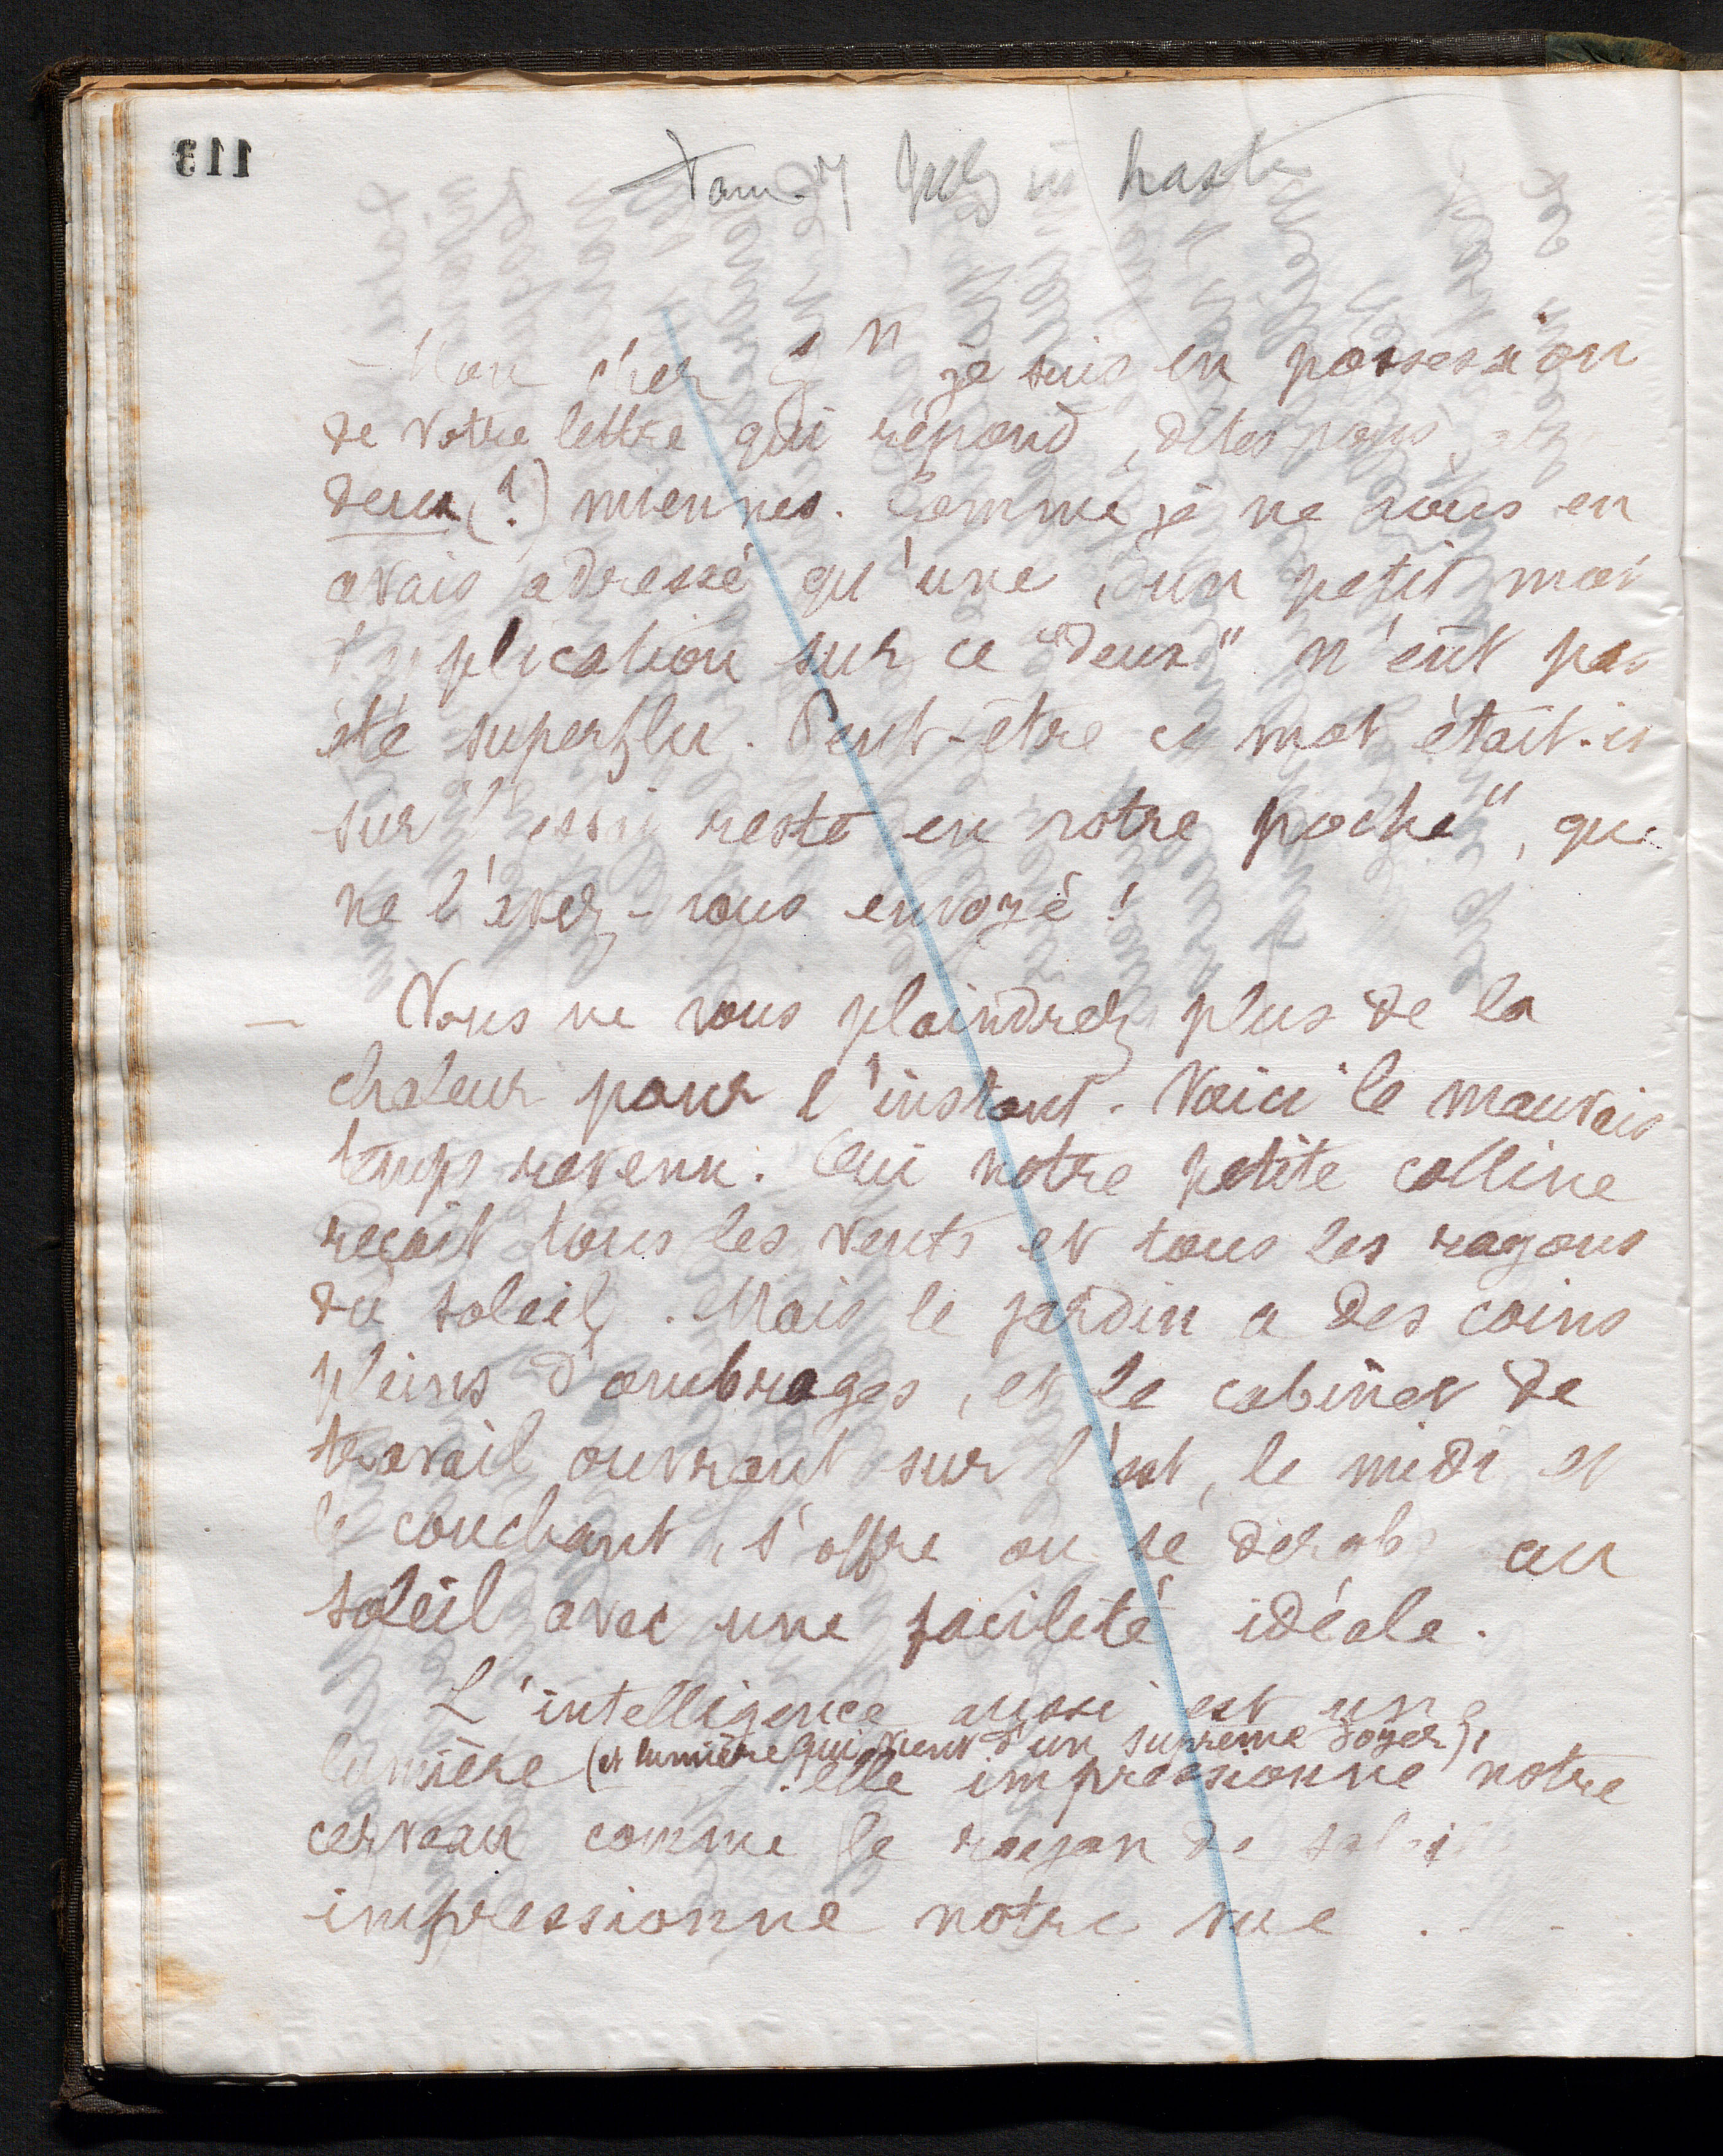 113
haste
- Mon cher G n je suis en possession
de votre lettre qui répond, dites vous,
deux (?) miennes. Comme je ne vous en
avais adressé qu'une, un petit mot
plication sur ce "deux" n'eût pas
été superflu. Peut-être ce mot était-il
sur l'essai resté en votre poche", que
ne l'avez-vous envoyé!
- Vous ne vous plaindrez plus de la
chaleur pour l'instant. Voici le mauvais
temps revenu. Oui notre petite colline
reçoit tous les vents et tous les rayons
du soleil. Mais le jardin a des coins
pleins d'ombrages, et le cabinet de
travail ouvrant sur l'est, le midi et
le couchant, s'offre ou se dérobe au
soleil avec une facilité idéale.
L'intelligence aussi est une
lumière (et lumière qui vient d'un suprême foyer),
elle impressionne notre
cerveau comme le rayon de soleil
impressionne notre vue . . .